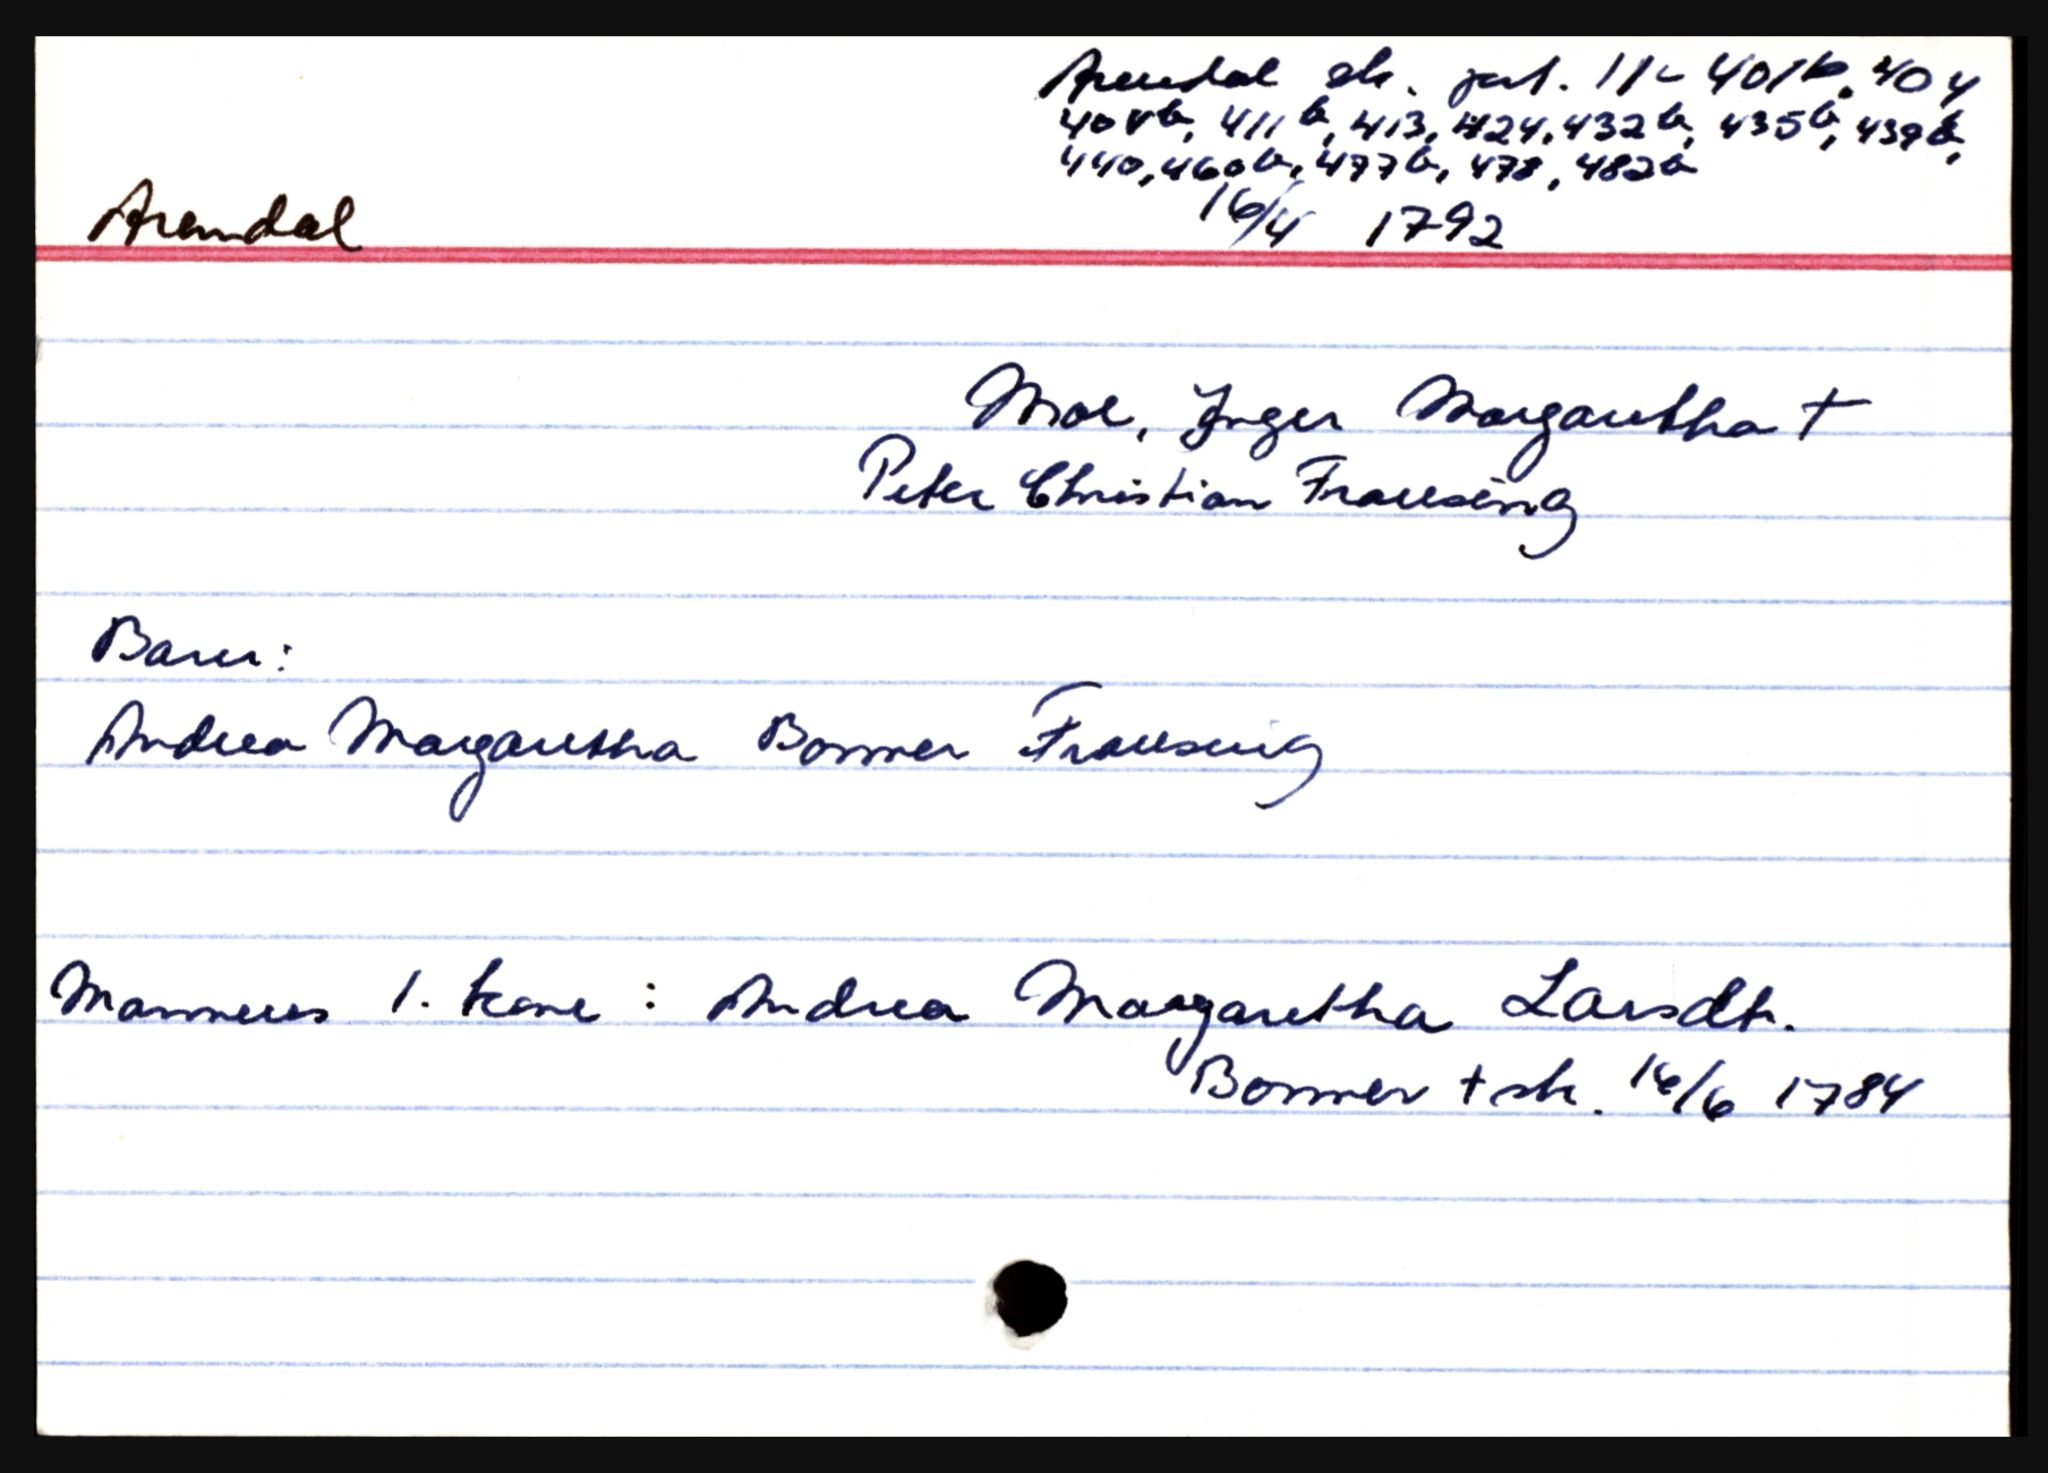 Arendal sk. prt. 11 - 401b, 404
408b, 411b, 413, 424, 432b, 435b, 439b,
440, 460b, 477b, 478, 482b
16/4 1792
Arendal
Moe, Inger Margaretha †
Peter Christian Frausing
Barn:
Andrea Margaretha Bomer Frausing
Mannens 1. kone : Andrea Margaretha Larsdtr.
Bomer † sk. 16/6 1784